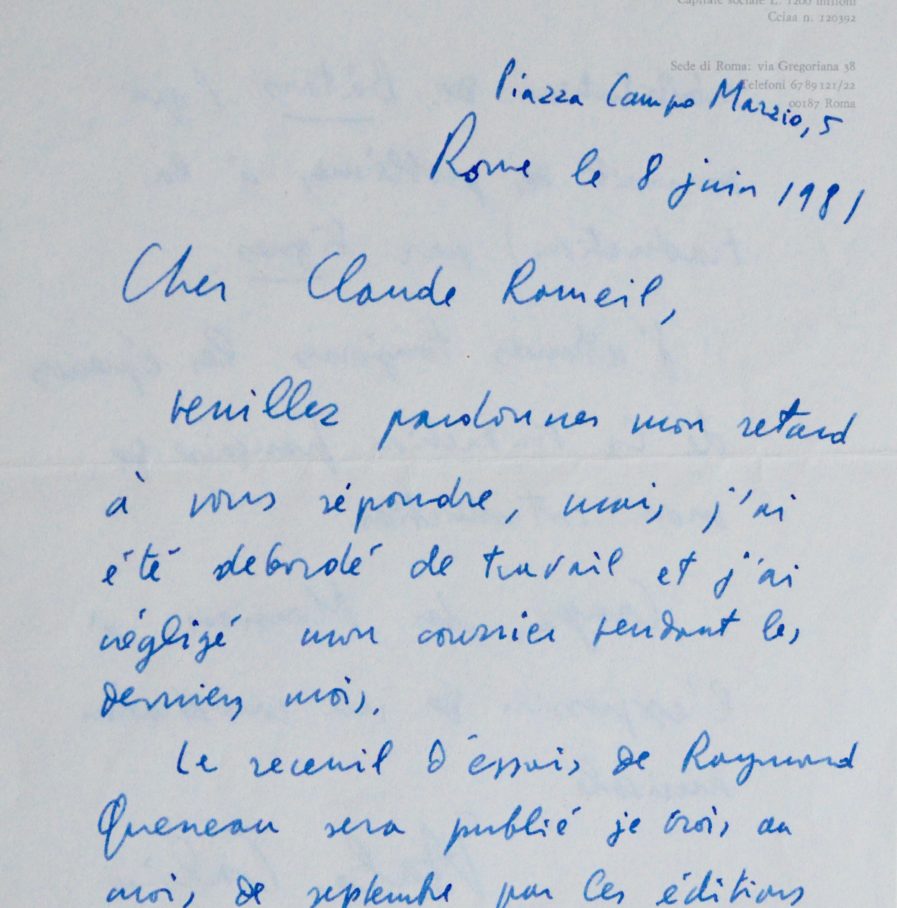 Capitale sociale L. 1200 milioni
Cciaa n. 120392
Sede di Roma: via Gregoriana 38
Telefoni 6789121/22
00187 Roma
Piazza Campo Marzio, 5
Rome le 8 juin 1981
Cher Claude Rameil,
veuillez pardonner mon retard
à vous répondre, mais j'ai
été debordé de travail et j'ai
négligé mon courrier pendant les
derniers mois.
Le receuil d'essais de Raymond
Queneau sera publié je crois au
mois de septembre par les éditions